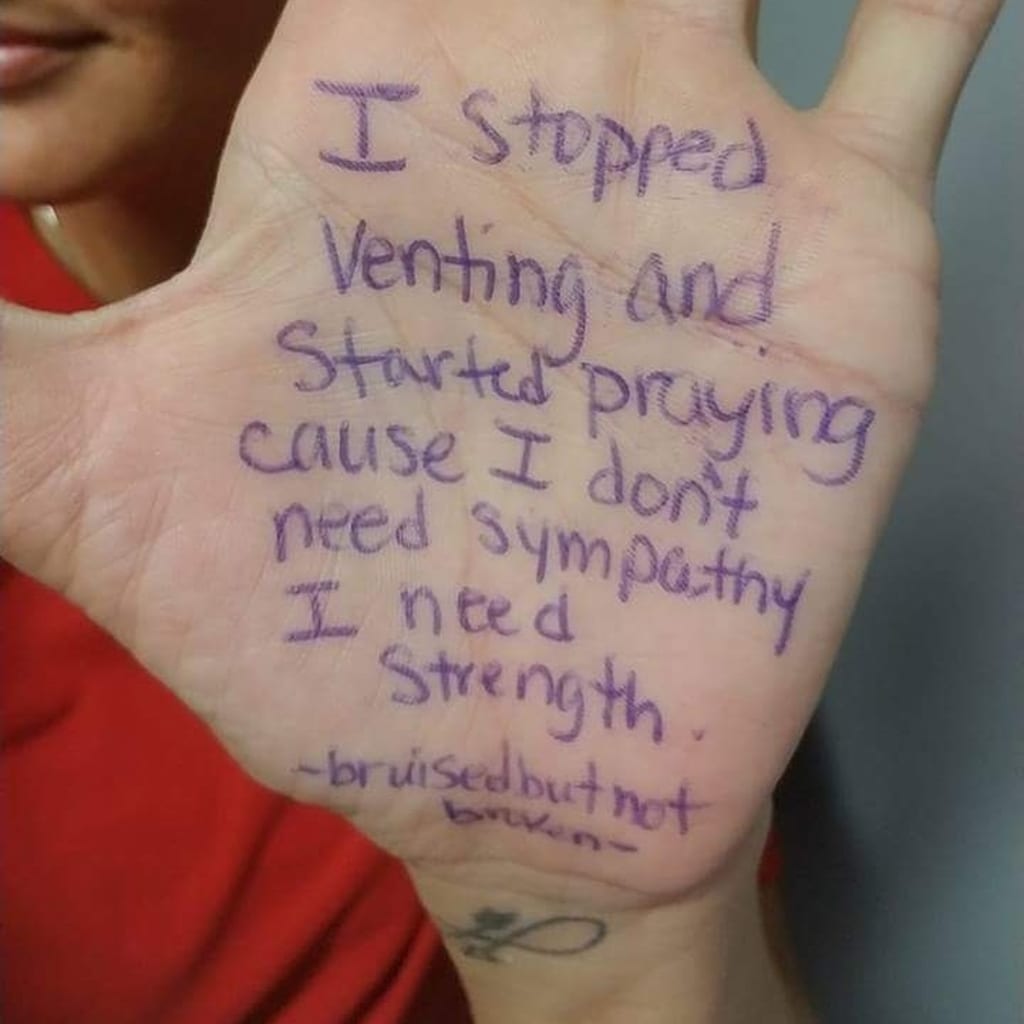 I stopped
Venting and
Started praying
cause I don't
need sympathy
I need
Strength.
-bruisedbutnot
broken-